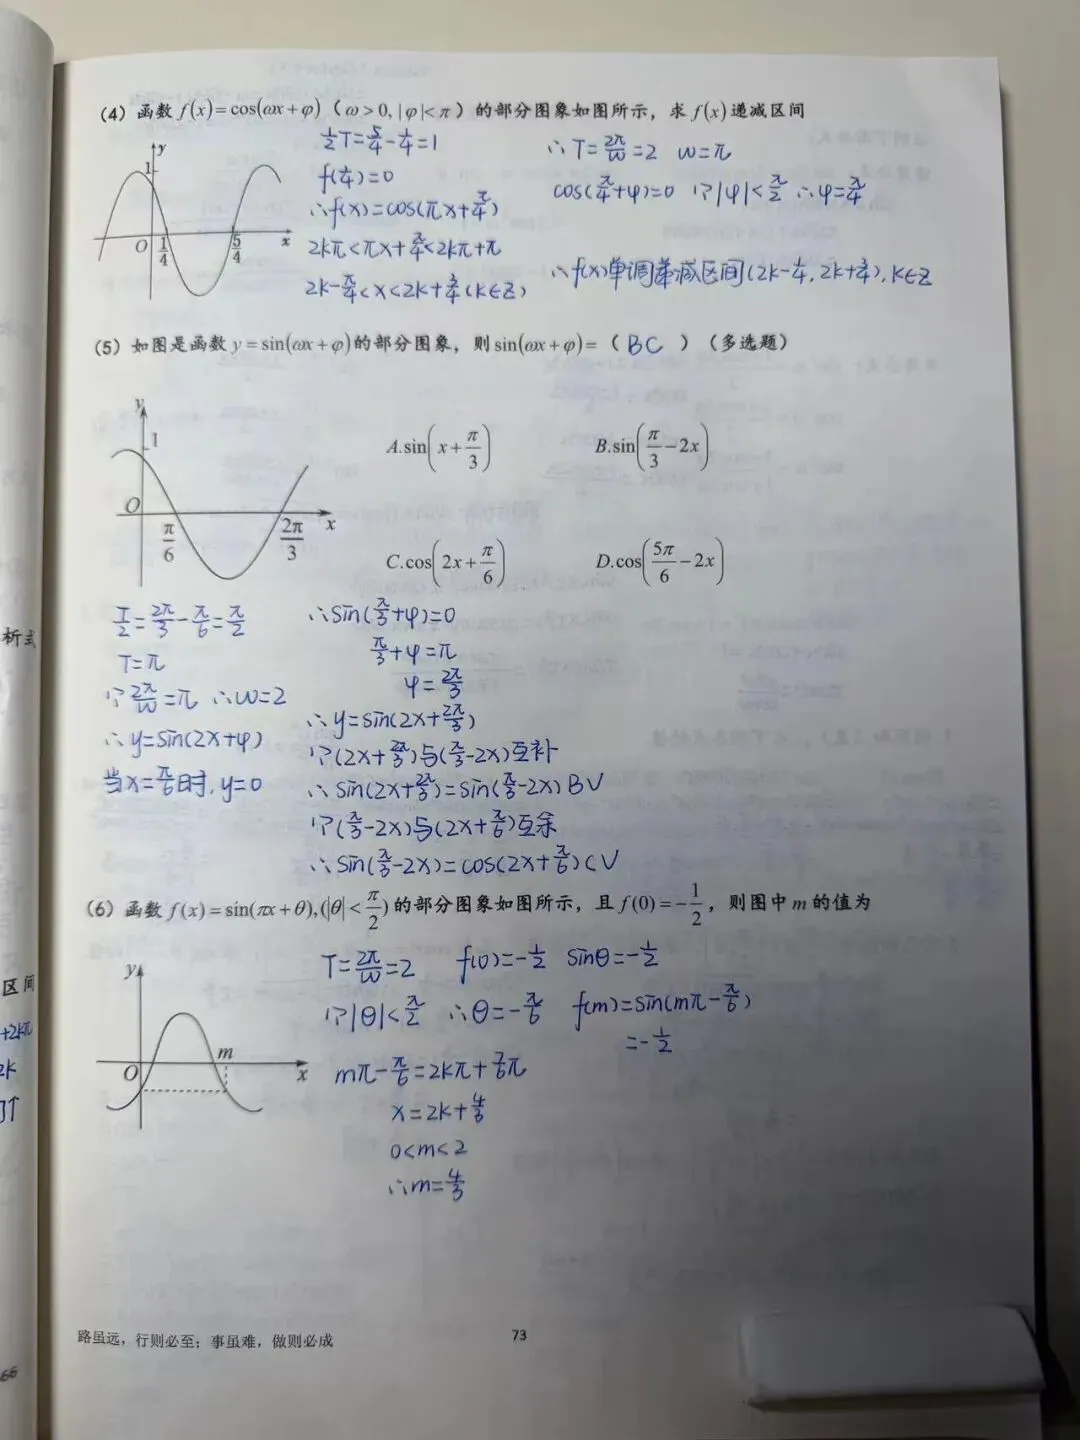 (4) 函数 f(x)=cos(ωx+φ)（ω>0, |φ|<π）的部分图象如图所示，求 f(x) 递减区间
y
1
O
1/4
5/4
x
1/2T=5/4-1/4=1
∴T=2π/ω=2 ω=π
f(1/4)=0
cos(π/4+φ)=0 ∵|φ|<π/2 ∴φ=π/4
∴f(x)=cos(πx+π/4)
2kπ<πx+π/4<2kπ+π
2k-π/4<x<2k+3/4(k∈Z)
∴f(x)单调递减区间(2k-1/4, 2k+3/4), k∈Z
(5) 如图是函数 y=sin(ωx+φ)的部分图象，则 sin(ωx+φ)=（ BC ）（多选题）
y
1
O
π/6
2π/3
x
A.sin(x+π/3)
B.sin(π/3-2x)
C.cos(2x+π/6)
D.cos(5π/6-2x)
T/2=2π/3-π/6=π/2
T=π
∵2π/ω=π ∴ω=2
∴y=sin(2x+φ)
当x=π/6时, y=0
∴sin(π/3+φ)=0
π/3+φ=π
φ=2π/3
∴y=sin(2x+2π/3)
∵(2x+2π/3)与(π/3-2x)互补
∴sin(2x+2π/3)=sin(π/3-2x) B√
∵(π/3-2x)与(2x+π/6)互余
∴sin(π/3-2x)=cos(2x+π/6) C√
(6) 函数 f(x)=sin(πx+θ),(|θ|<π/2) 的部分图象如图所示，且 f(0)=-1/2，则图中 m 的值为
y
O
m
x
T=2π/ω=2 f(0)=-1/2 sinθ=-1/2
∵|θ|<π/2 ∴θ=-π/6 f(m)=sin(mπ-π/6)
=-1/2
mπ-π/6=2kπ+7/6π
x=2k+4/3
0<m<2
∴m=4/3
析式
区间
+2kπ
2k
↑
路虽远，行则必至；事虽难，做则必成
73
66